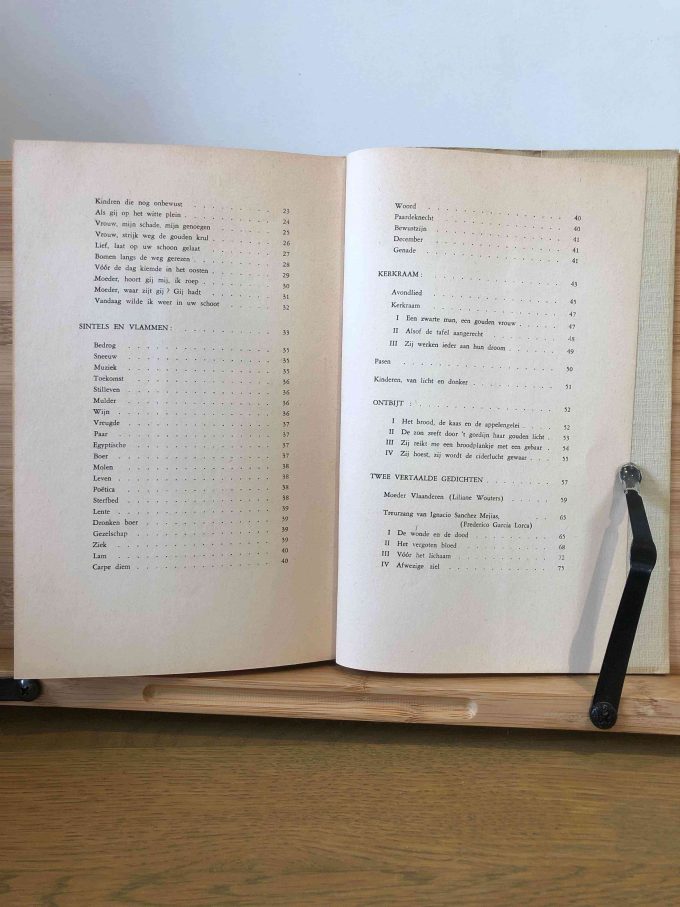 Kindren die nog onbewust . . . . . . . . 23
Als gij op het witte plein . . . . . . . . 24
Vrouw, mijn schade, mijn genoegen . . . . . 25
Vrouw, strijk weg de gouden krul . . . . . 26
Lief, laat op uw schoon gelaat . . . . . . 27
Bomen langs de weg gerezen . . . . . . . 28
Vóór de dag kiemde in het oosten . . . . . 29
Moeder, hoort gij mij, ik roep . . . . . . 30
Moeder, waar zijt gij ? Gij hadt . . . . . . 31
Vandaag wilde ik weer in uw schoot . . . . 32
SINTELS EN VLAMMEN : . . . . . . . . 33
Bedrog . . . . . . . . . . . . 35
Sneeuw . . . . . . . . . . . . 35
Muziek . . . . . . . . . . . . 35
Toekomst . . . . . . . . . . . . 36
Stilleven . . . . . . . . . . . . 36
Mulder . . . . . . . . . . . . 36
Wijn . . . . . . . . . . . . 36
Vreugde . . . . . . . . . . . . 37
Paar . . . . . . . . . . . . 37
Egyptische . . . . . . . . . . . . 37
Boer . . . . . . . . . . . . 37
Molen . . . . . . . . . . . . 38
Leven . . . . . . . . . . . . 38
Poëtica . . . . . . . . . . . . 38
Sterfbed . . . . . . . . . . . . 38
Lente . . . . . . . . . . . . 39
Dronken boer . . . . . . . . . . . 39
Gezelschap . . . . . . . . . . . . 39
Ziek . . . . . . . . . . . . 39
Lam . . . . . . . . . . . . 40
Carpe diem . . . . . . . . . . . 40
Woord . . . . . . . . . . . . 40
Paardeknecht . . . . . . . . . . . 40
Bewustzijn . . . . . . . . . . . . 41
December . . . . . . . . . . . . 41
Genade . . . . . . . . . . . . 41
KERKRAAM : . . . . . . . . . . . 43
Avondlied . . . . . . . . . . . . 45
Kerkraam . . . . . . . . . . . . 47
I Een zwarte man, een gouden vrouw . . . . 47
II Alsof de tafel aangerecht . . . . . . 48
III Zij werken ieder aan hun droom . . . . . 49
Pasen . . . . . . . . . . . . 50
Kinderen, van licht en donker . . . . . . . 51
ONTBIJT : . . . . . . . . . . . 52
I Het brood, de kaas en de appelengelei . . . 52
II De zon zeeft door 't gordijn haar gouden licht . 53
III Zij reikt me een broodplankje met een gebaar . 54
IV Zij hoest, zij wordt de ciderlucht gewaar . . 55
TWEE VERTAALDE GEDICHTEN . . . . . . 57
Moeder Vlaanderen (Liliane Wouters) . . . . . 59
Treurzang van Ignacio Sanchez Mejias, . . . . . 65
(Frederico Garcia Lorca)
I De wonde en de dood . . . . . . . 65
II Het vergoten bloed . . . . . . . . 68
III Vóór het lichaam . . . . . . . . 72
IV Afwezige ziel . . . . . . . . . 75